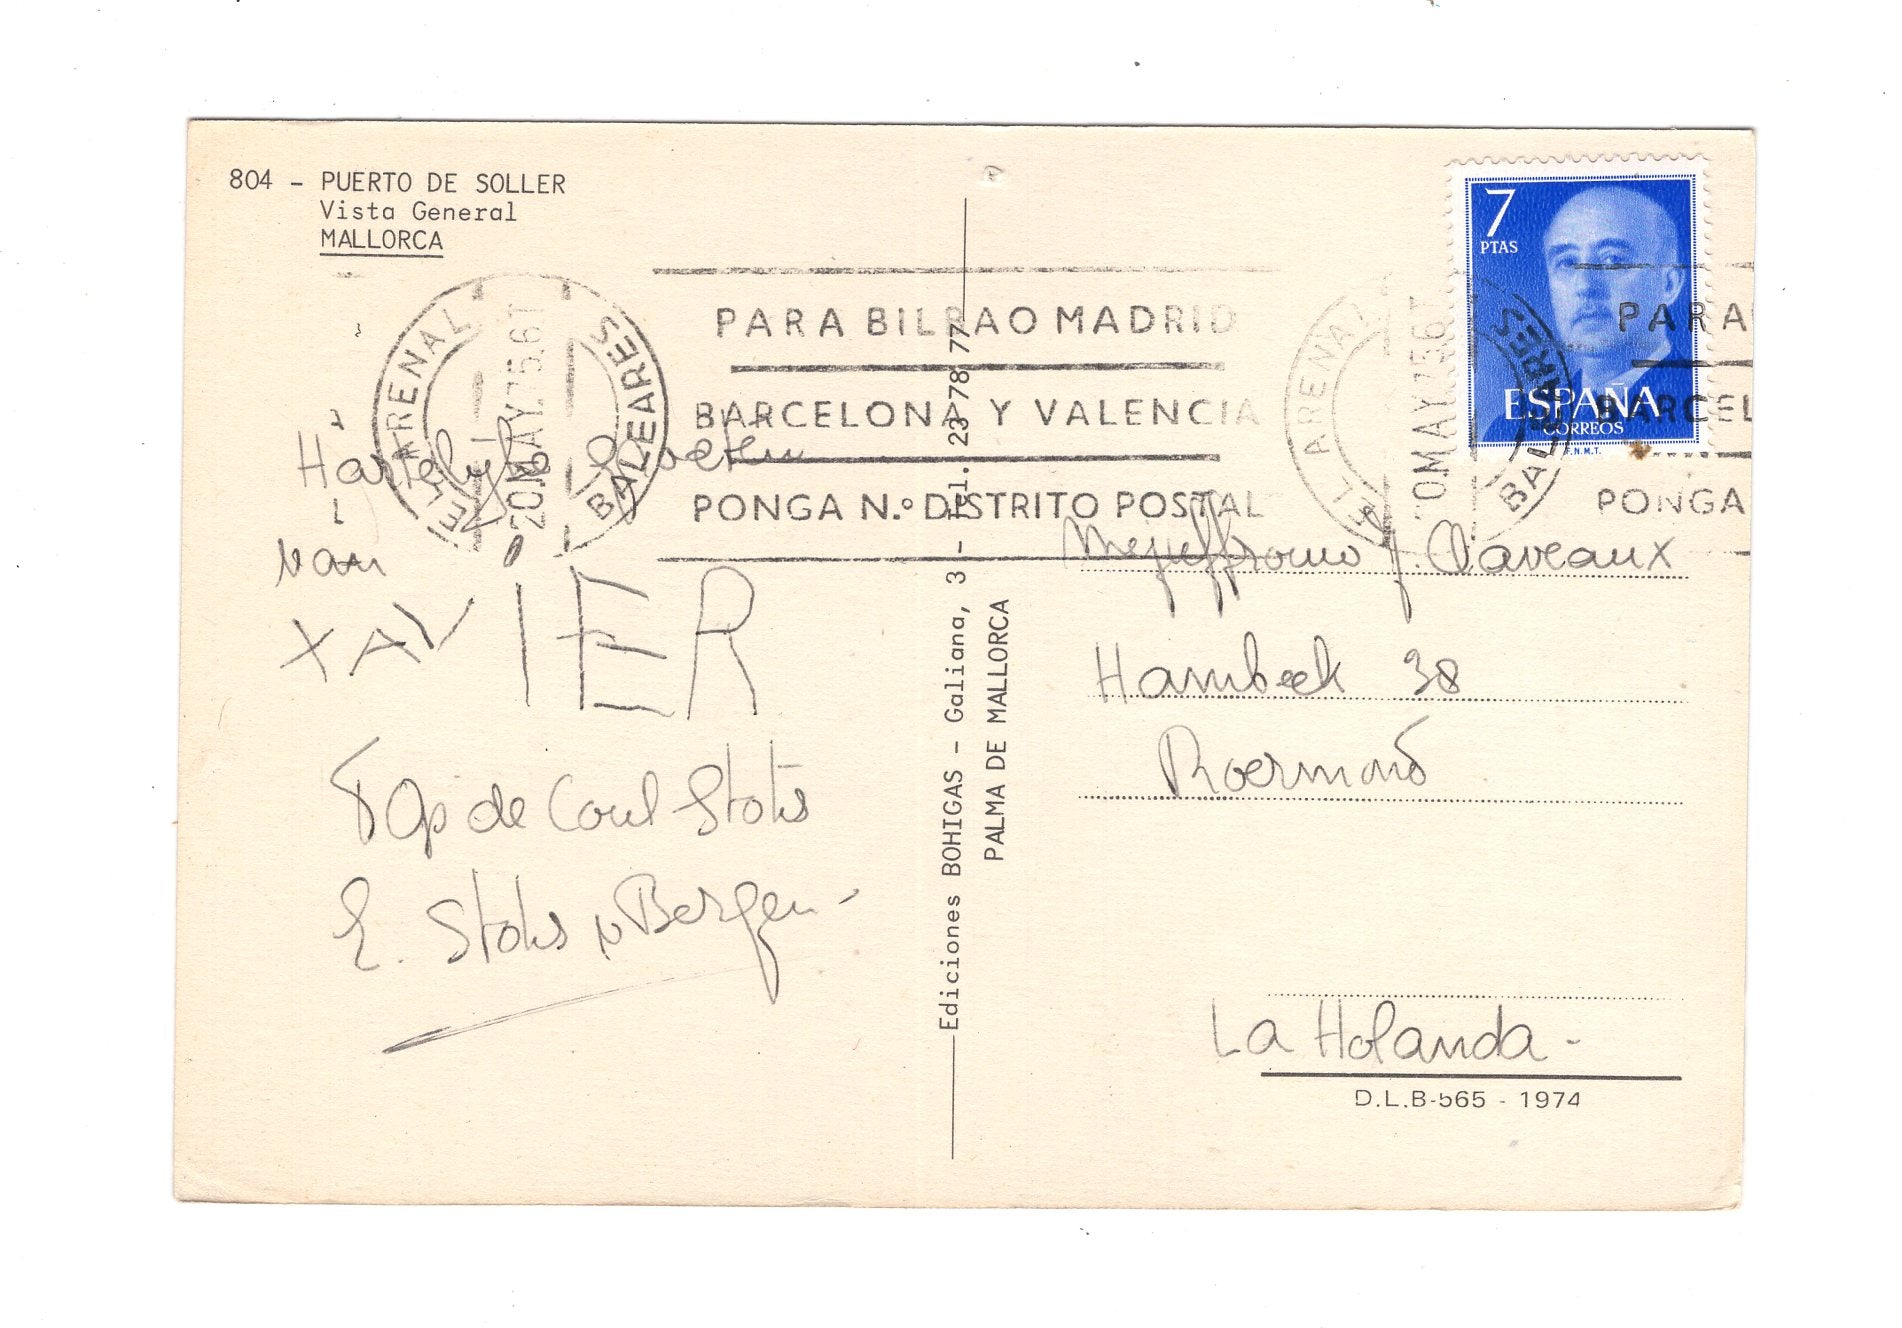 804 - PUERTO DE SOLLER
Vista General
MALLORCA
EL ARENAL
BALEARES
20 MAY.75.6T
PARA BILBAO MADRID
BARCELONA Y VALENCIA
PONGA N.º DISTRITO POSTAL
EL ARENAL
BALEARES
20MAY.75 6T
PARA
BARCEL
PONGA
7
PTAS
ESPAÑA
CORREOS
F.N.M.T.
Hartelijke Groeten
van
XAVIER
Stoks
E. Stoks v Bergen -
Ediciones BOHIGAS - Galiana, 3 - Tel. 23 78 77
PALMA DE MALLORCA
Mejuffrouw J. Claveaux
Hambeek 38
Roermond
La Holanda -
D.L.B-565 - 1974